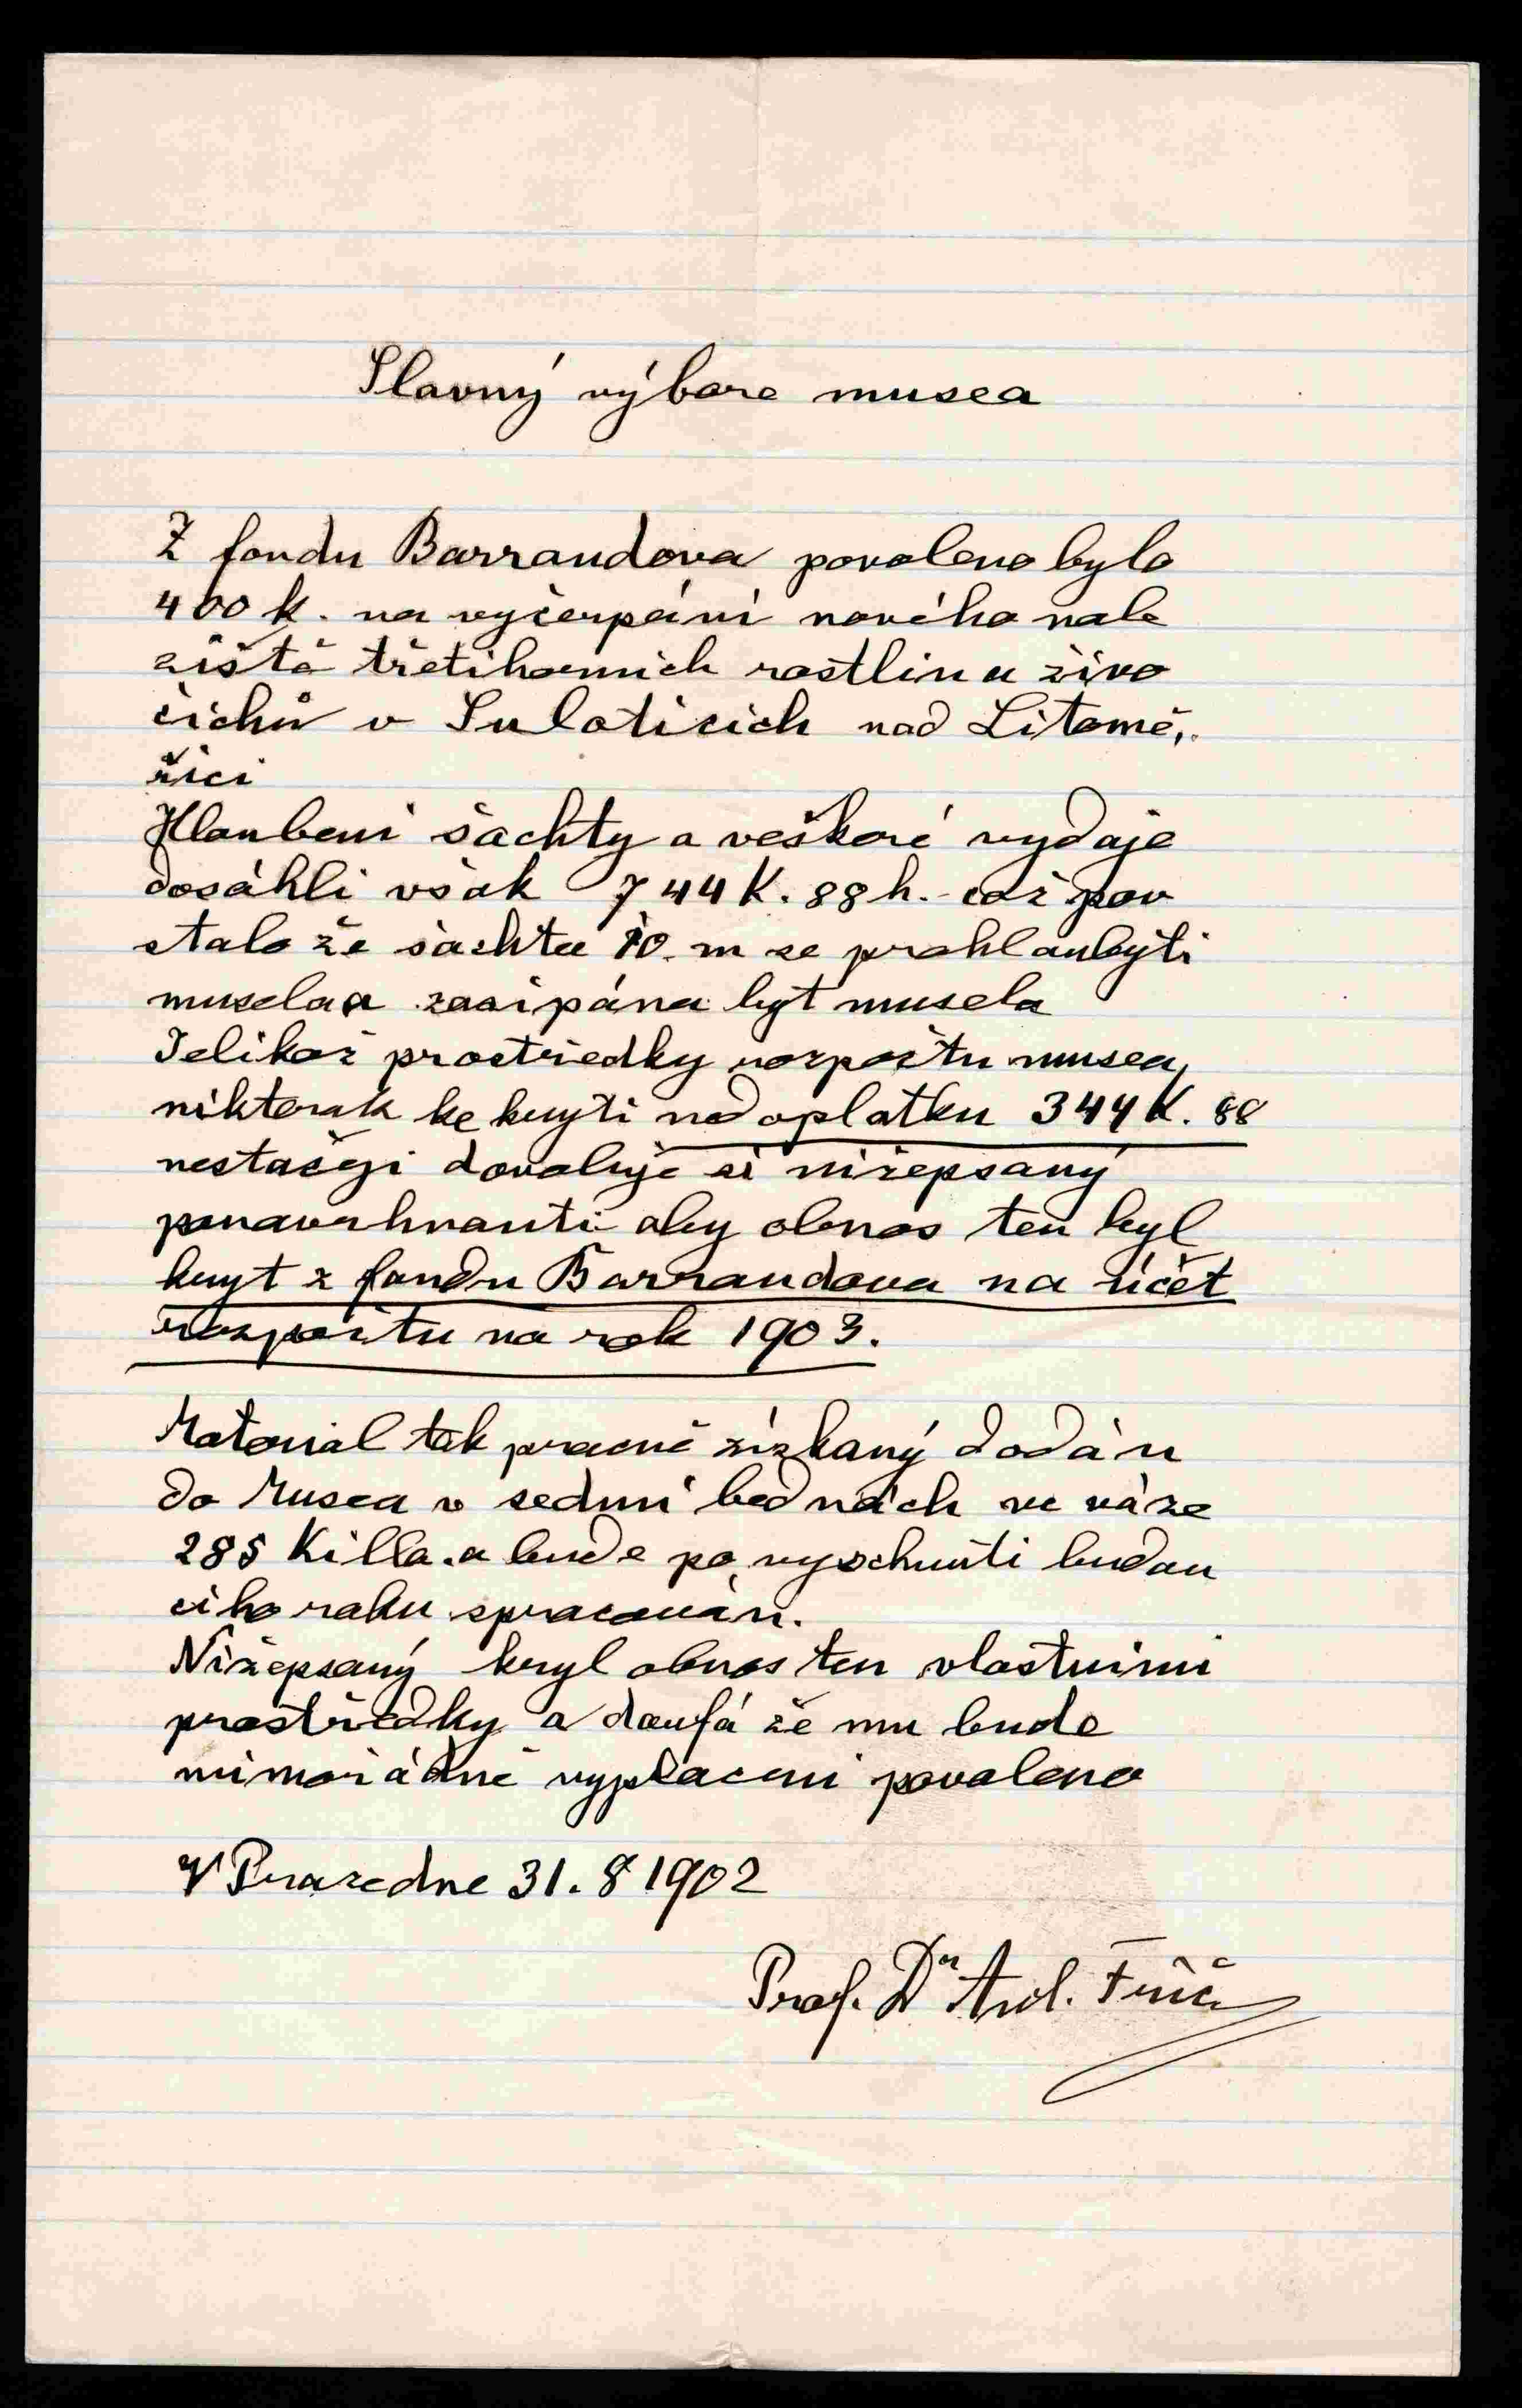 Slavný výbore musea
Z fondu Barrandova povoleno bylo
400 k. na vyčerpání nového nale
ziště třetihorních rostlin a živo
čichů v Suloticích nad Litomě,
řici
Hloubení šachty a veškeré vydaje
dosáhli však 744 K. 88 h. - což pov
stalo že šachta 10. m se prohloubyti
musela a zasipána byt musela
Jelikož prostředky rozpočtu musea,
nikterak ke kryti nedoplatku 344 K. 88
nestačeji dovoluje si nižepsaný
ponavrhnouti aby obnos ten byl
kryt z fondu Barrandova na účet
rozpočtu na rok 1903.
Material tak pracně získaný dodán
do Musea v sedmi bednách ve váze
285 Killo. a bude po vyschnuti budou
cího roku spracován.
Nižepsaný kryl obnos ten vlastnimi
prostředky a doufá že mu bude
mimořádné vyplaceni povoleno
V Praze dne 31. 8 1902
Prof. Dr Ant. Frič